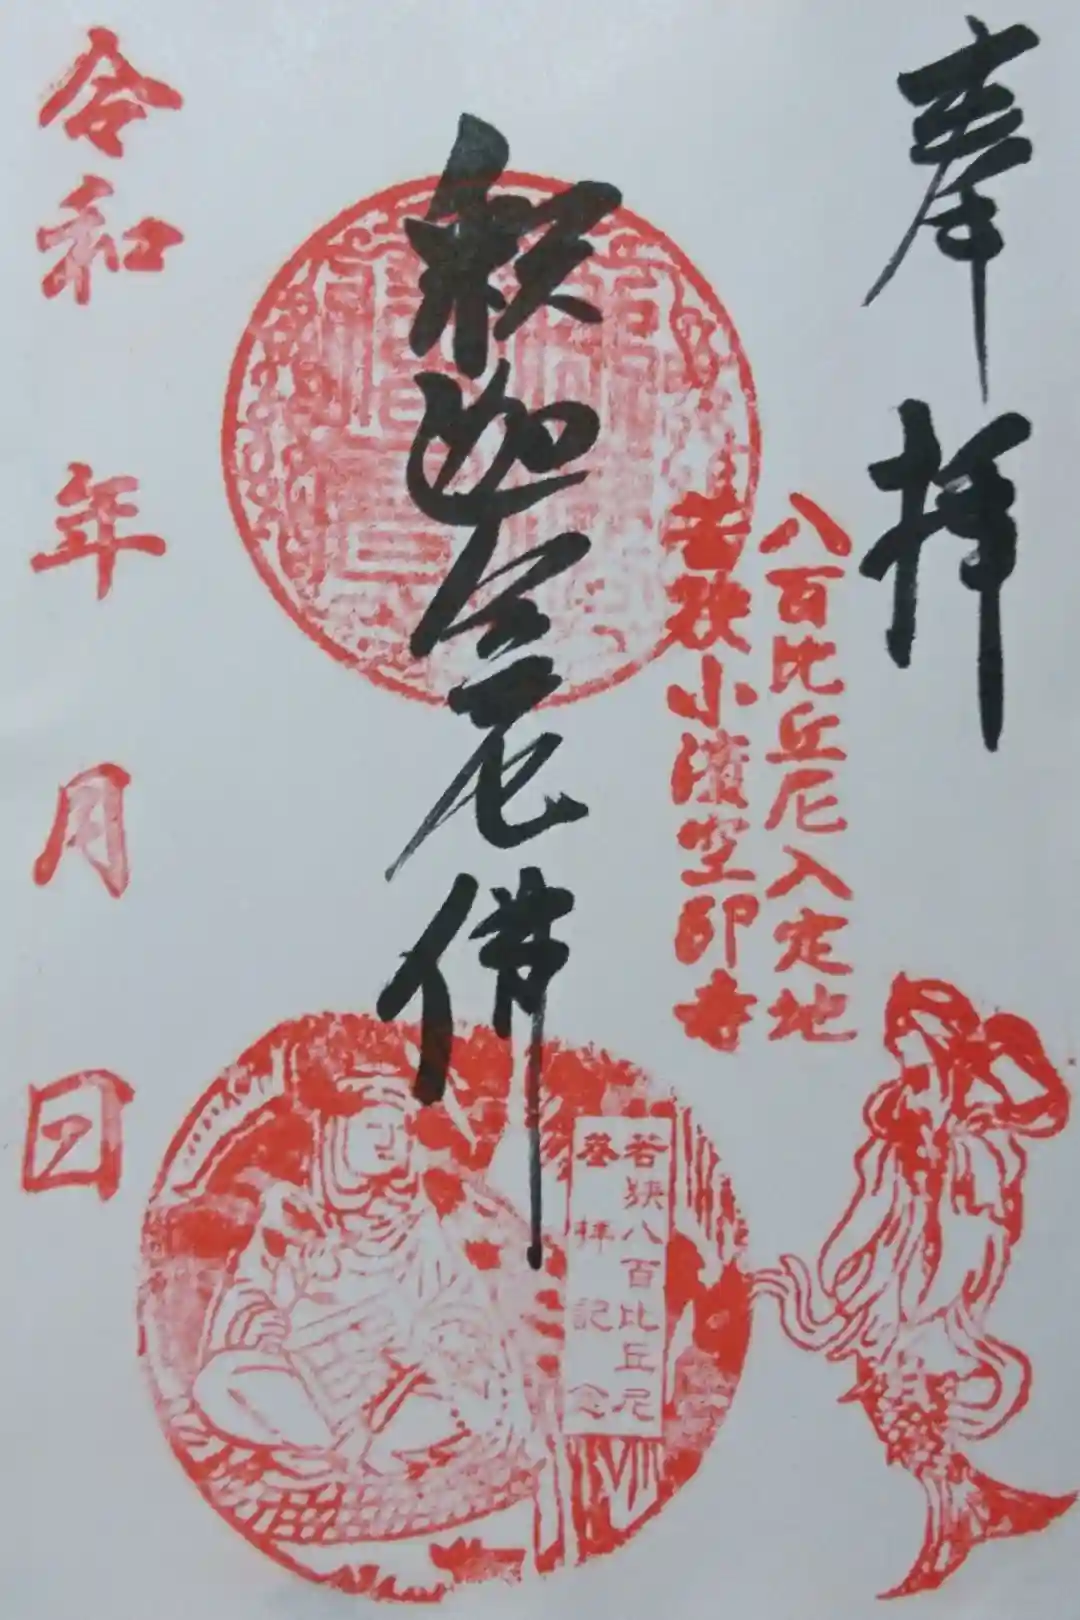 奉拝
八百比丘尼入定地
若狭小濱空印寺
釈迦牟尼佛
若狭八百比丘尼
墓拝記念
令和 年 月 日